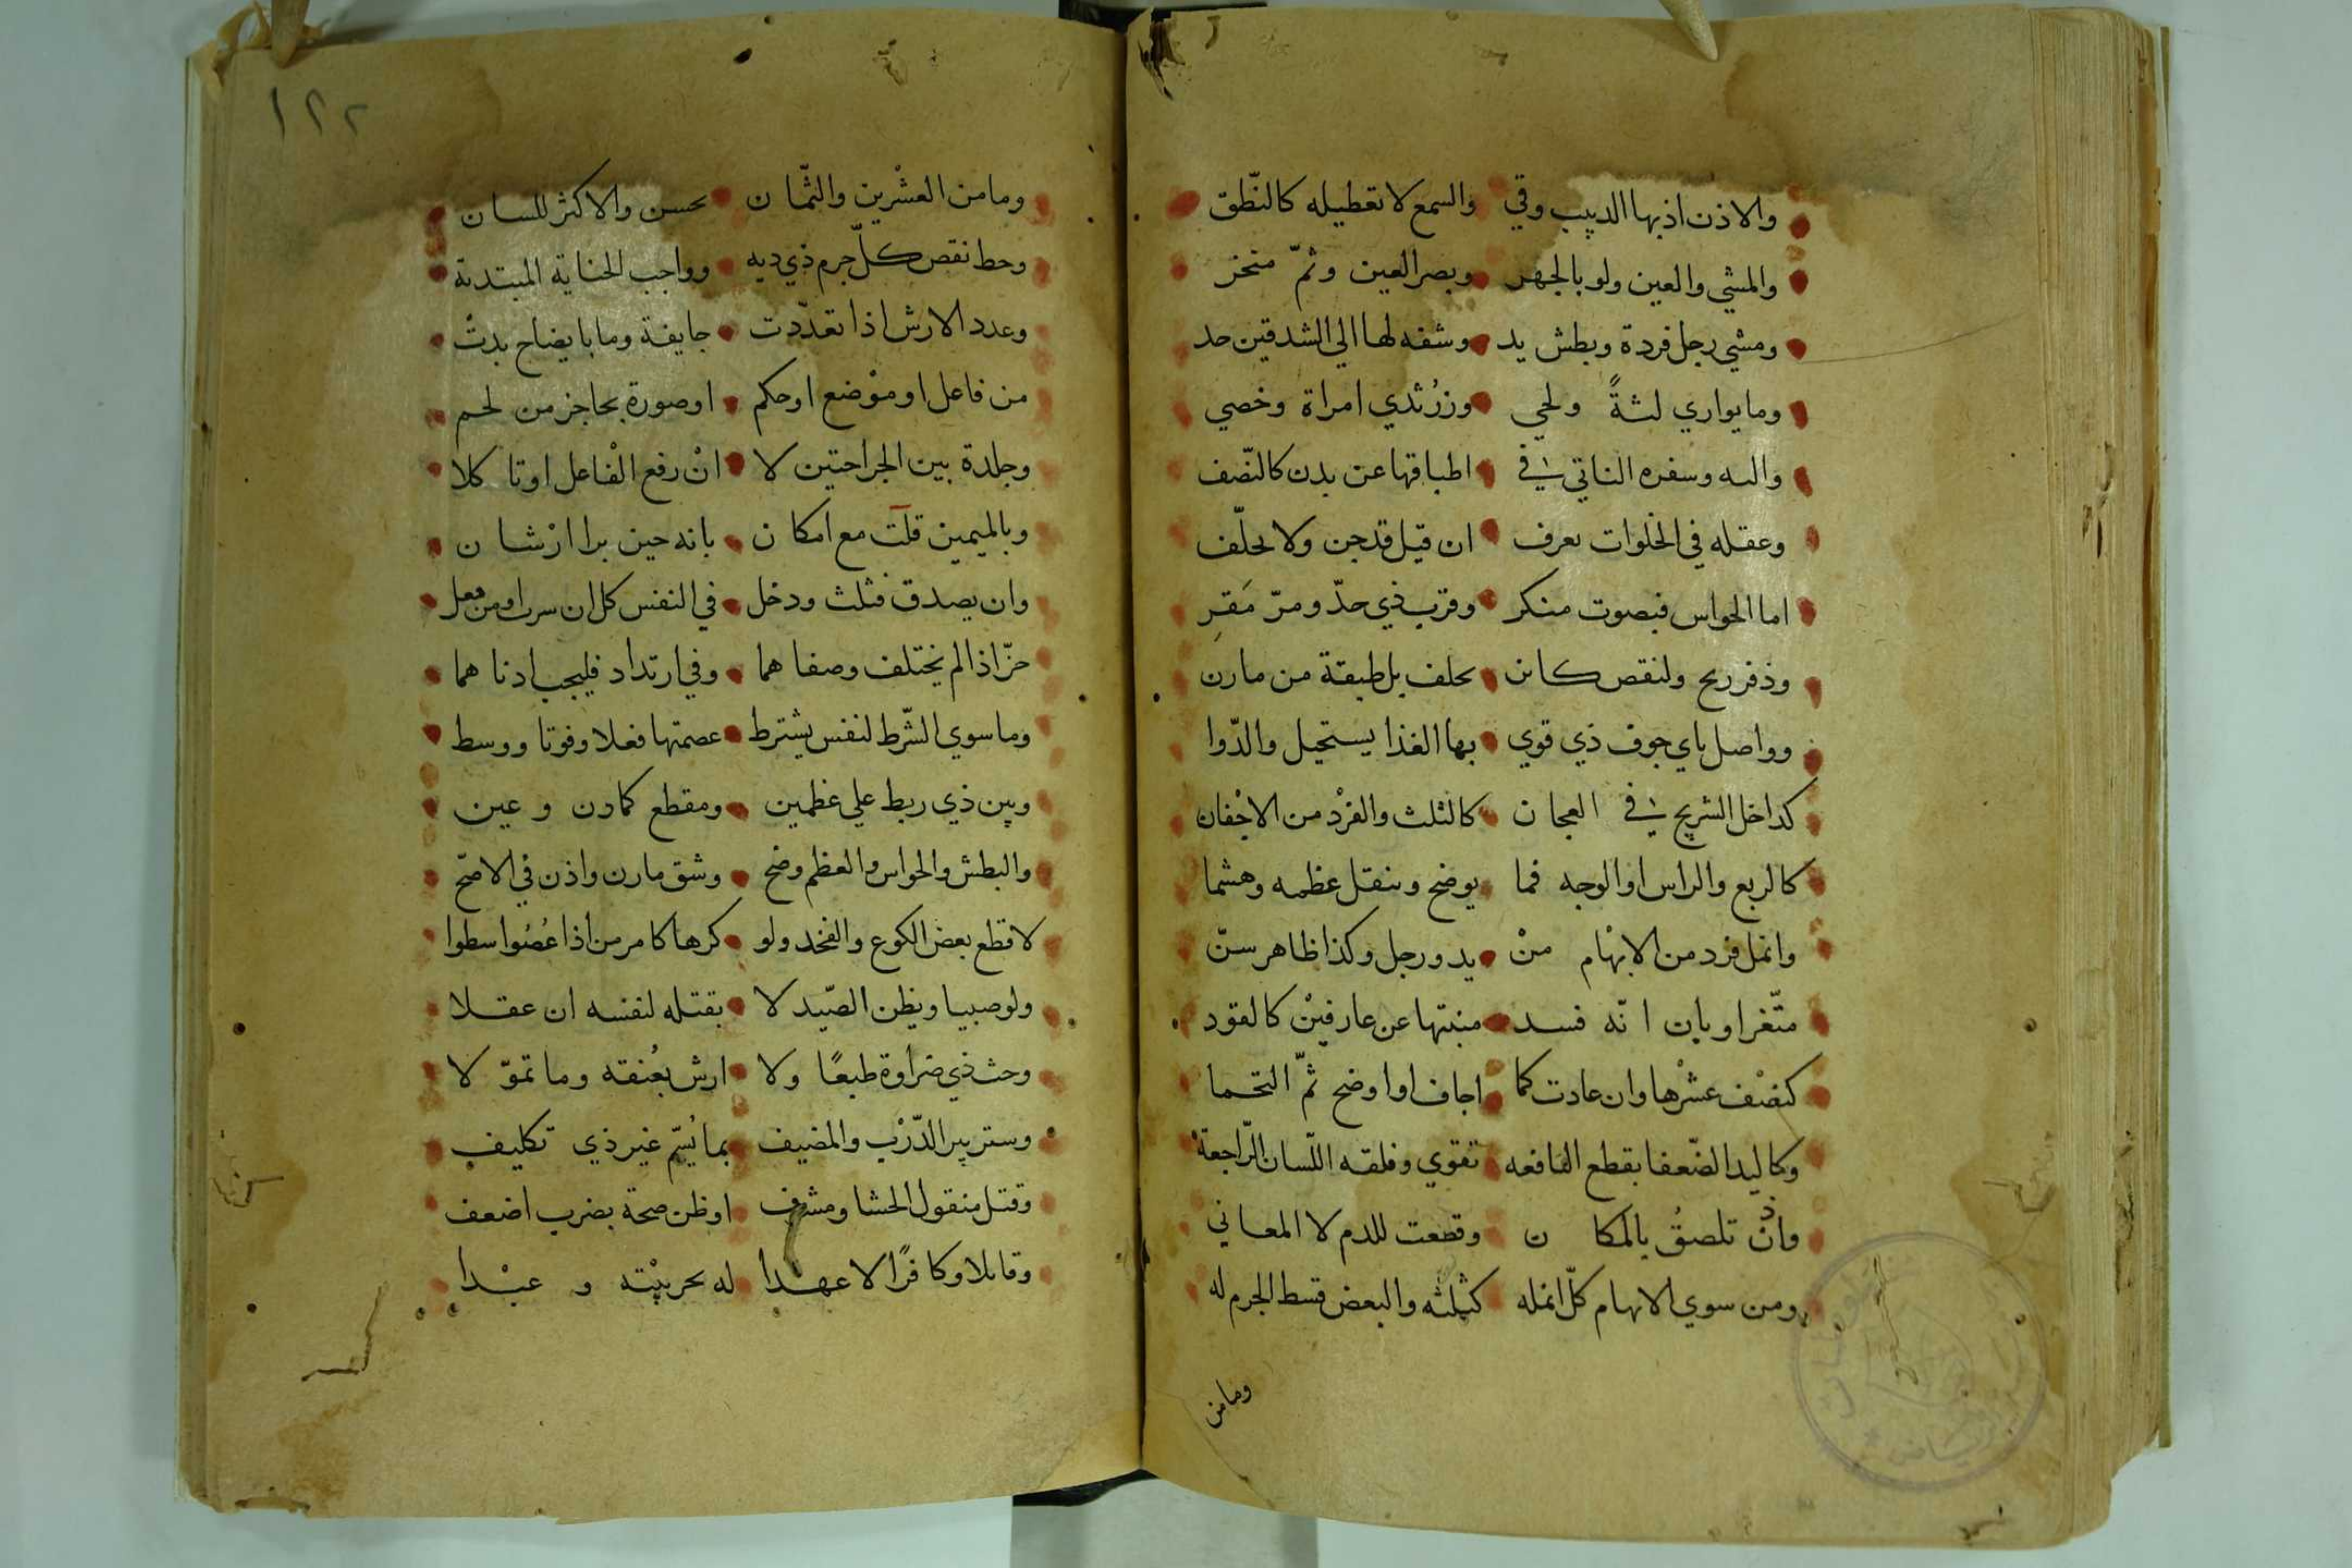 والاذن اذبها الدبيب وقي والسمع لا تعطيله كالنّطق
والمشي والعين ولو بالجهر وبصر العين وثمّ منخر
ومشي رجل فردة وبطش يد وشفه لها الي الشدقين حد
وما يواري لثةً ولحي وزرُ ثدي امراة وخصي
واليه وسفره الناتي في اطباقها عن بدن كالنّصف
وعقله في الخلوات يعرف ان قيل قد جن ولا يحلّف
اما الحواس فبصوت منكر وقرب ذي حدّ ومرّ مَقِر
وذفر ريح ولنقص كاين يحلف بل طبقة من مارن
وواصل باي جوف ذي قوي بها الغذا يستحيل والدّوا
كداخل الشريج في العجان كالثلث والفرْد من الاجْفان
كالربع والراس او الوجه فما يوضح وينقل عظمه وهشما
وانمل فرد من الابهْام منْ يد ورجل وكذا ظاهر سنّ
متّغر او بان انّه فسد منبتها عن عارفيْن كالقود
كنصْف عشْرها وان عادت كما اجاف او اوضح ثمّ التحما
وكاليد الضّعفا بقطع النافعه تقوي وفلقه اللّسان الرّاجعهْ
واذنْ تلصقُ بالمكان وقطعت للدم لا المعاني
ومن سوي الابهام كلّ انمله كثلثه والبعض قسط الجرم له
وما من
١٢٢
وما من العشْرين والثّمان يحسن والاكثر للسان
وحط نقص كلّ جرم ذي ديه وواجب الجناية المبتدية
وعدد الارش اذا تعدّدت جايفة وما بايضاح بدتْ
من فاعل او موْضع او حكم او صورة بحاجز من لحم
وجلدة بين الجراحتين لا انْ رفع الفْاعل او تاكلا
وبالميمين قلّت مع امكان بانه حين برا ارْشان
وان يصدق فثلث ودخل في النفس كل ان سرت او من فعل
حزّ اذا لم يختلف وصفاهما وفي ارتداد فليجب ادناهما
وما سوي الشّرط لنفس يشترط عصمتها فعلا وفوتا ووسط
وبين ذي ربط علي عظمين ومقطع كمارن وعين
والبطش والحواس والعظم وضح وشق مارن واذن في الاصّح
لا قطع بعض الكوع والفخد ولو كرها كامر من اذا عُصُوا سطوا
ولو صبيا ويظن الصّيد لا بقتله لنفسه ان عقلا
وحث ذي ضراوة طبعًا ولا ارش بعُنقه وما تموّلا
وستر بير الدّرْب والمضيف بما يُسّم غير ذي تكليف
وقتل منقول الحشا ومشرف او ظن صحة بضرب اضعف
وقابلا وكافرًا لا عهدا له بحربيْته وعبْدا